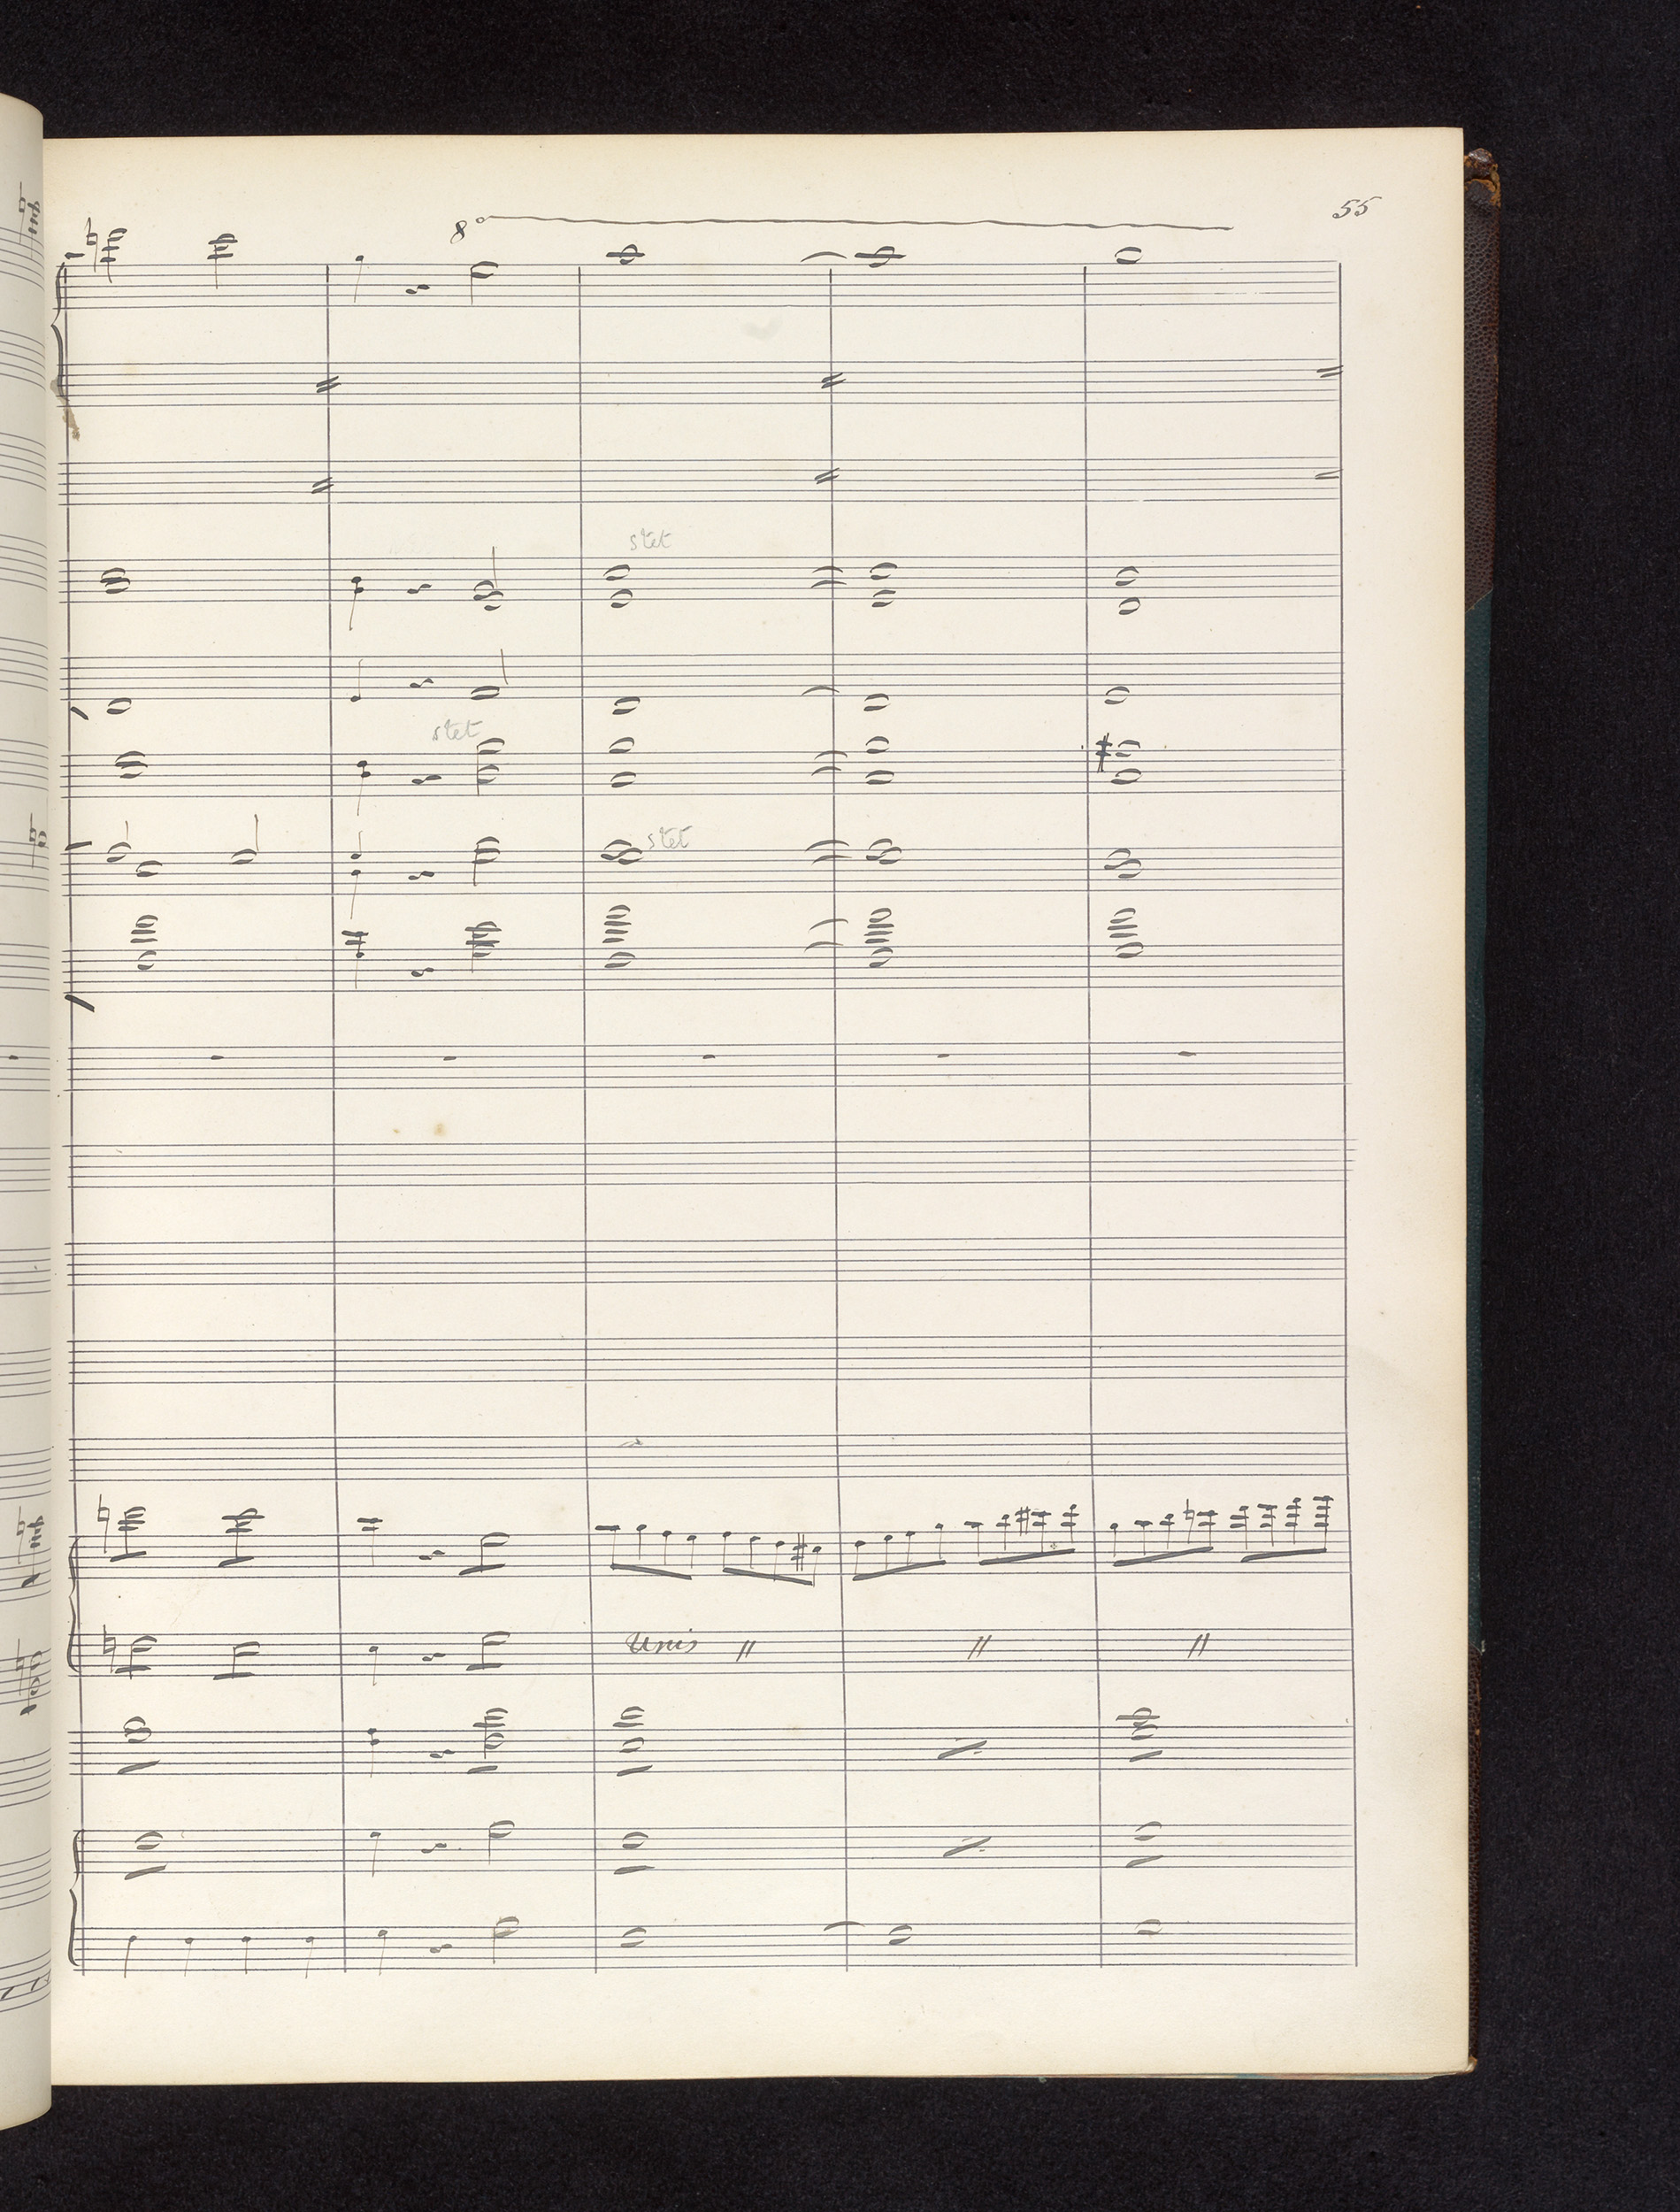 55
8º
stet
stet
stet
Unis